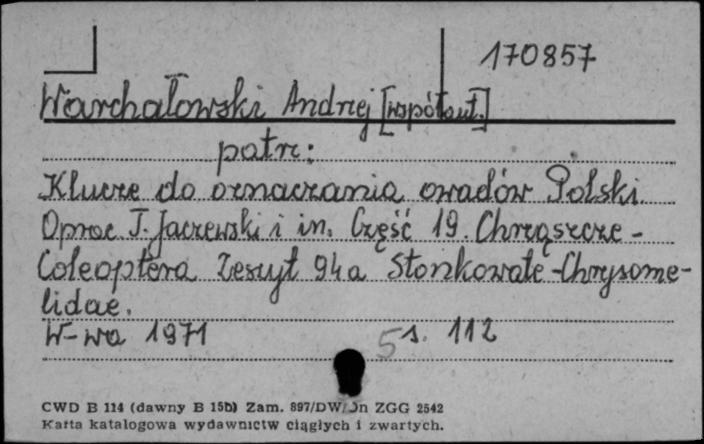 170857
Warchałowski Andrzej [współaut.]
patrz:
Klucze do oznaczania owadów Polski.
Oprac. J. Jaczewski i in. Część 19. Chrząszcze -
Coleoptera Zeszyt 94a Stonkowate - Chrysome-
lidae.
W-wa 1971 5 s. 112
CWD B 114 (dawny B 15b) Zam. 897/DW/Dn ZGG 2542
Karta katalogowa wydawnictw ciągłych i zwartych.